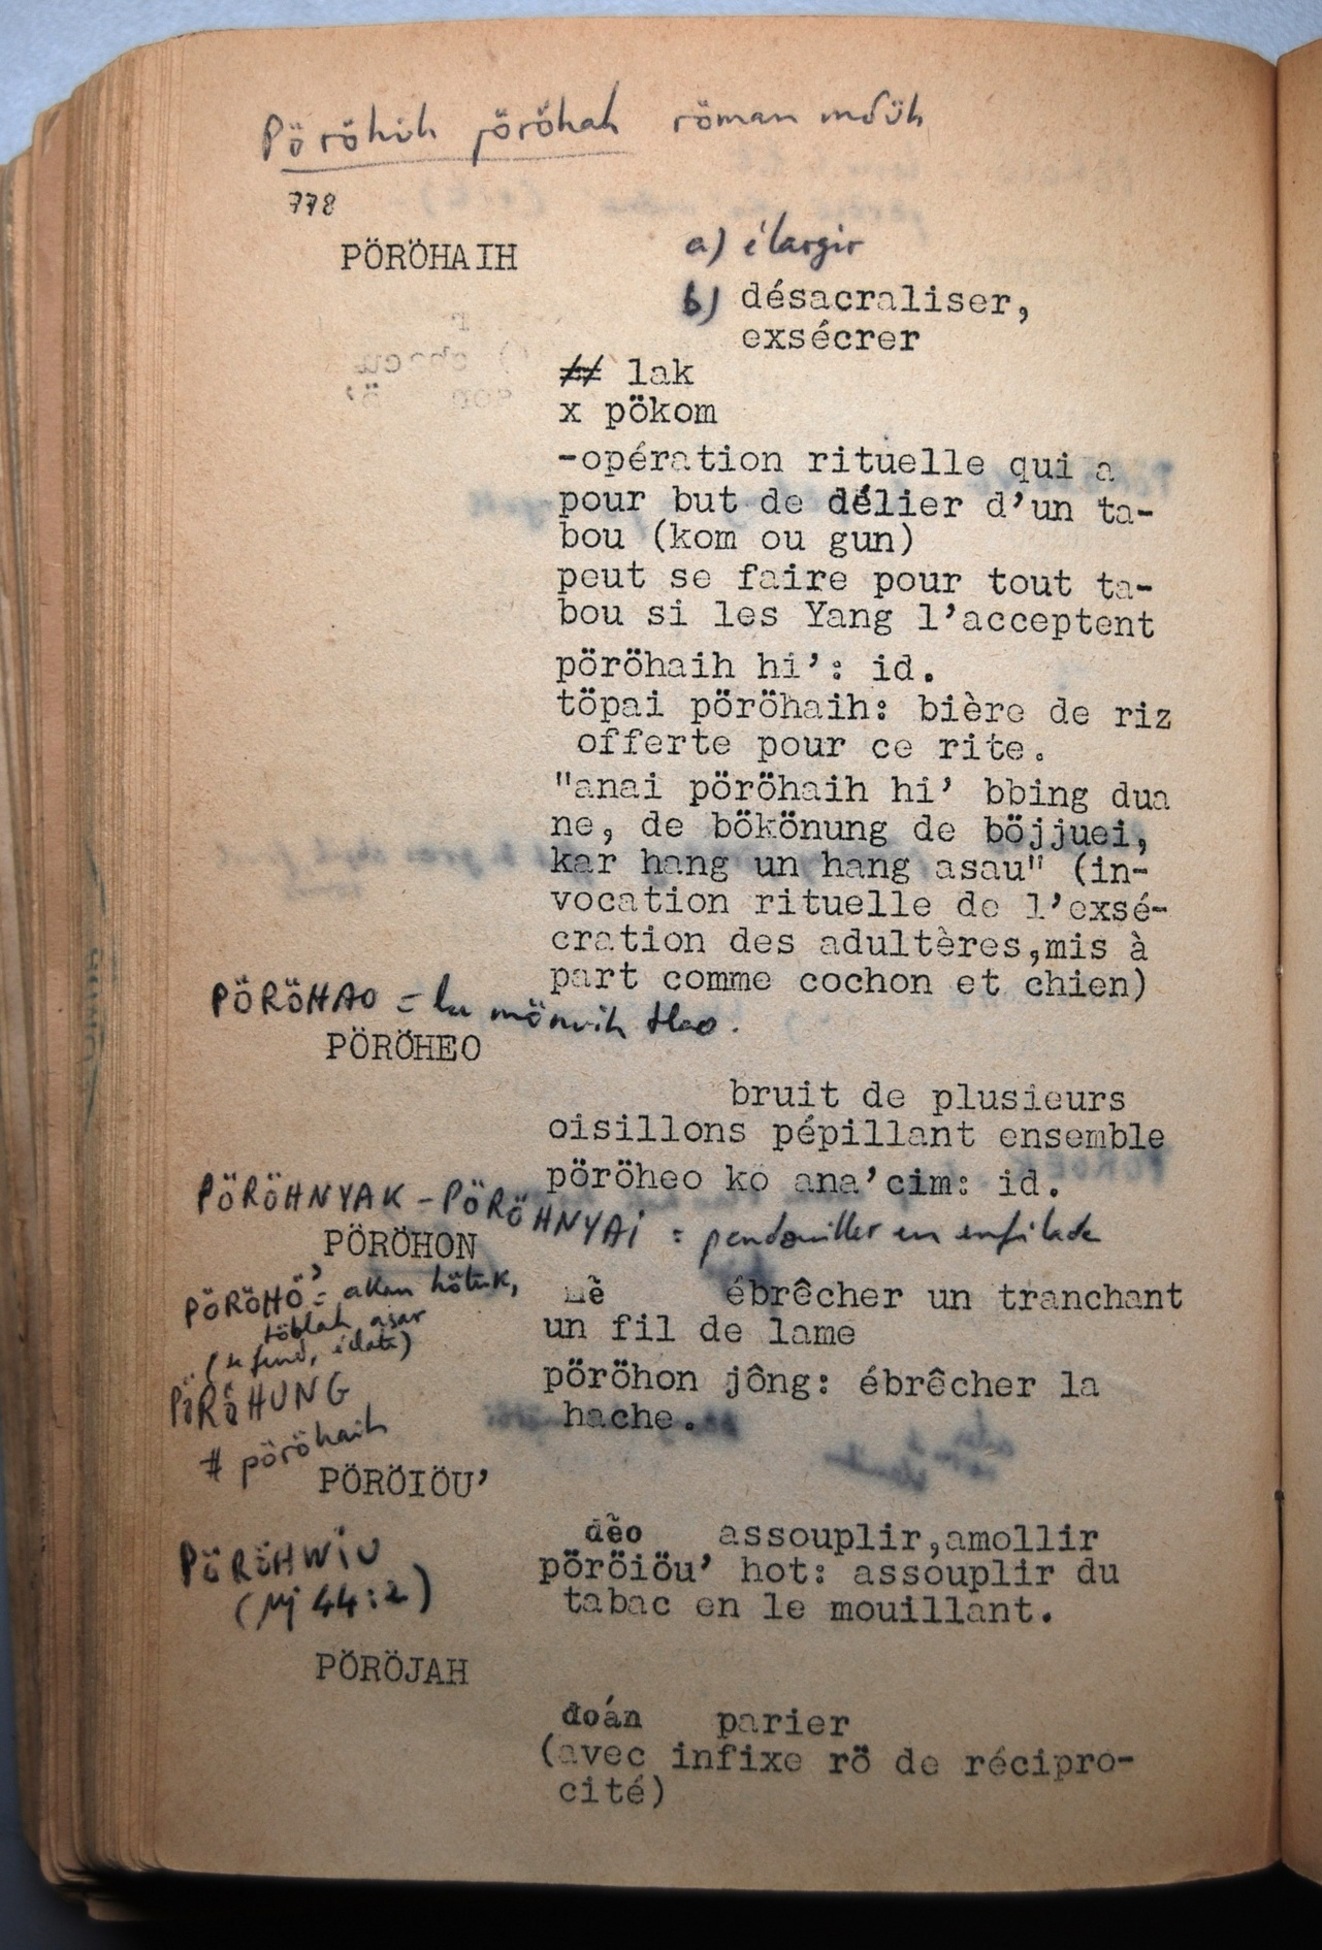 Pöröhih pöröhah röman möüh
778
PÖRÖHAIH
a) élargir
b) désacraliser,
exsécrer
# lak
x pökom
-opération rituelle qui a
pour but de délier d'un ta-
bou (kom ou gun)
peut se faire pour tout ta-
bou si les Yang l'acceptent
pöröhaih hi': id.
töpai pöröhaih: bière de riz
offerte pour ce rite.
"anai pöröhaih hi' bbing dua
ne, de bökönung de böjjuei,
kar hang un hang asau" (in-
vocation rituelle de l'exsé-
cration des adultères,mis à
part comme cochon et chien)
PÖRÖHAO = lu mönuih hao.
PÖRÖHEO
bruit de plusieurs
oisillons pépillant ensemble
pöröheo kö ana'cim: id.
PÖRÖHNYAK - PÖRÖHNYAI : pendouiller en enfilade
PÖRÖHON
mẻ ébrêcher un tranchant
un fil de lame
pöröhon jông: ébrêcher la
hache.
PÖRÖHÖ' = hötuk,
töblah asar
(se fend, éclate)
PÖRÖHUNG
# pöröhaih
PÖRÖIÖU'
dẽo assouplir,amollir
pöröiöu' hot: assouplir du
tabac en le mouillant.
PÖRÖHWIU
(Mj 44:2)
PÖRÖJAH
đoán parier
(avec infixe rö de récipro-
cité)